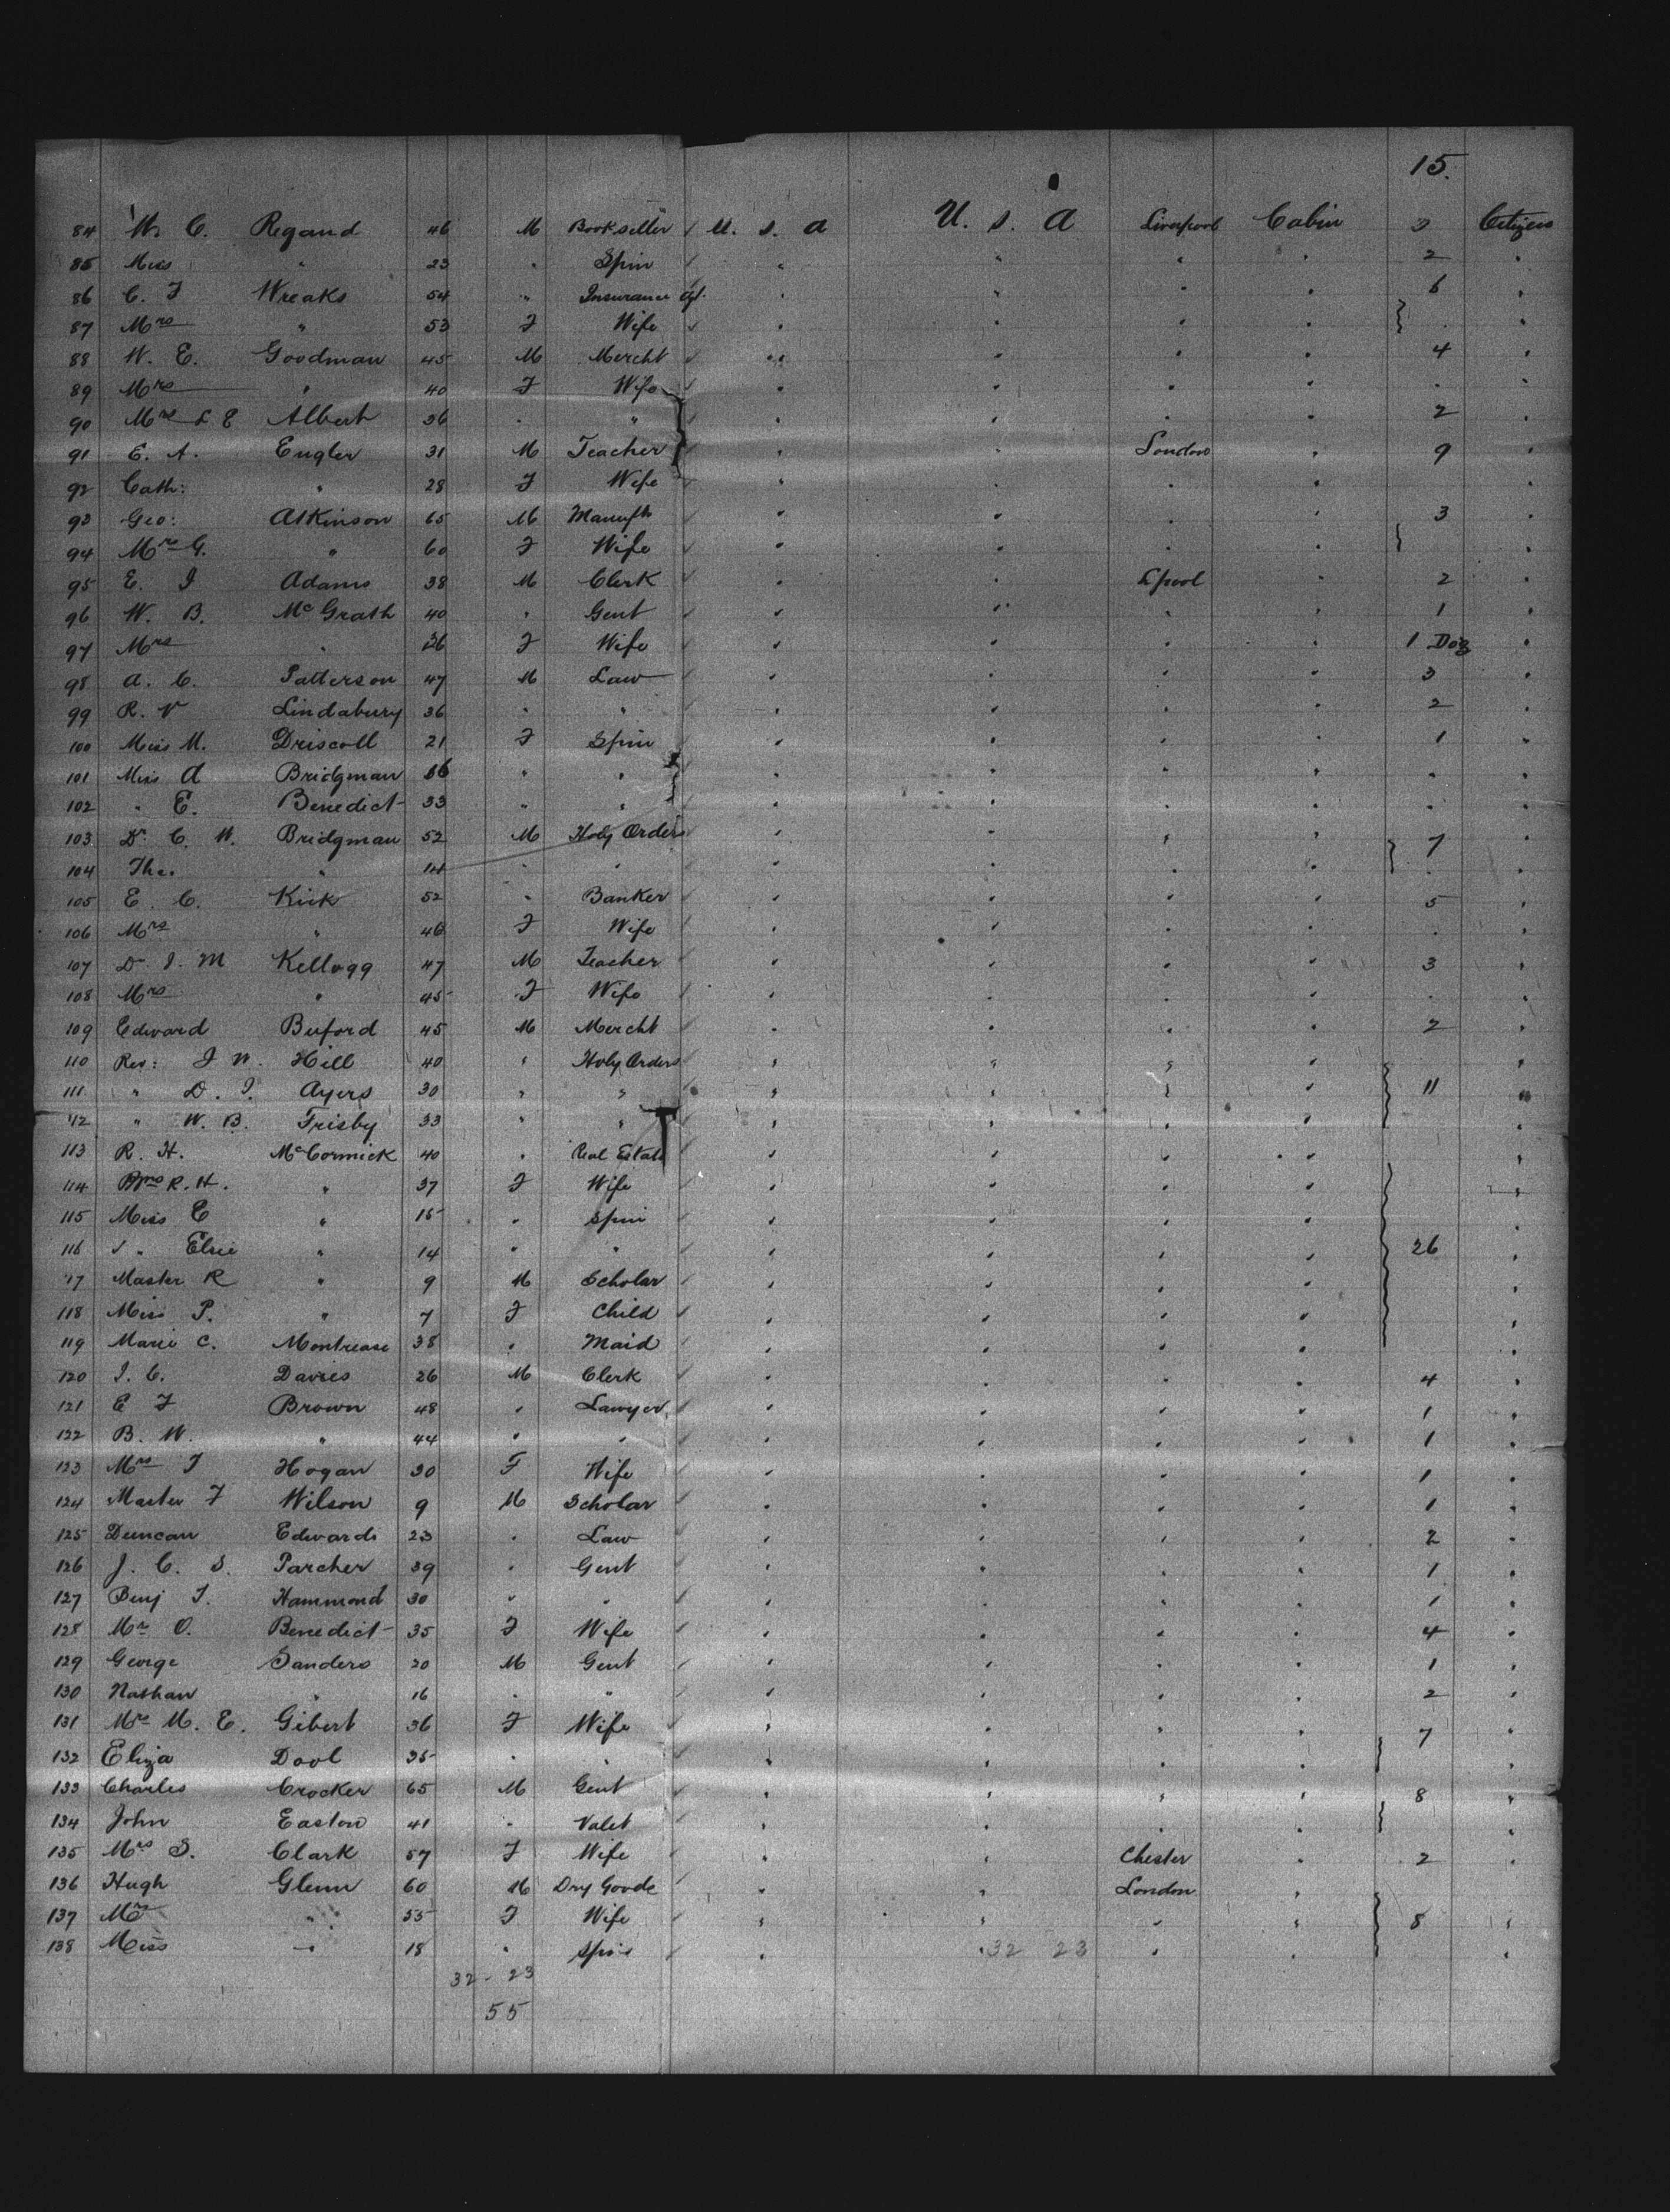 15.
84 W. C. Regand 46 M Bookseller U. S. A U. S. A Liverpool Cabin 3 Citizen
85 Miss " 23 " Spin " " " " 2 "
86 C. F Wreaks 54 " Insurance agt. " " " " 6 "
87 Mrs " 53 F Wife " " " " " "
88 W. E. Goodman 45 M Mercht " " " " 4 "
89 Mrs " 40 F Wife " " " " " "
90 Mrs L E Albert 36 " " " " " " 2 "
91 E. A. Engler 31 M Teacher " " London " 9 "
92 Cath: " 28 F Wife " " " "
93 Geo: Atkinson 65 M Manuftr " " " " 3 "
94 Mrs G. " 60 F Wife " " " " "
95 E. I Adams 38 M Clerk " " Lpool " 2 "
96 W. B. McGrath 40 " Gent " " " " 1 "
97 Mrs " 26 F Wife " " " " 1 Dog "
98 A. C. Patterson 47 M Law " " " " 3 "
99 R. V Lindabury 36 " " " " " " 2 "
100 Miss M. Driscoll 21 F Spin " " " " 1 "
101 Miss A Bridgman 36 " " " " " " " "
102 " E. Benedict 33 " " " " " " " "
103 Dr C. W. Bridgman 52 M Holy Orders " " " " 7 "
104 The. " 14 " " " " " " " "
105 E. C. Kirk 52 " Banker " " " " 5 "
106 Mrs " 46 F Wife " " " " " "
107 Dr J. M Kellogg 47 M Teacher " " " " 3 "
108 Mrs " 45 F Wife " " " " " "
109 Edward Buford 45 M Mercht " " " " 2 "
110 Rev: J W. Hill 40 " Holy Orders " " " " "
111 " D. I. Ayers 30 " " " " " " 11 "
112 " W. B. Frisby 33 " " " " " " "
113 R. H. McCormick 40 " Real Estate " " " " "
114 Mrs R. H. " 37 F Wife " " " " "
115 Miss E " 15 " Spin " " " " "
116 " Elsie " 14 " " " " " " 26 "
117 Master R " 9 M Scholar " " " " "
118 Miss P. " 7 F Child " " " " "
119 Marie C. Montrease 38 " Maid " " " " "
120 I. C. Davies 26 M Clerk " " " " 4 "
121 E F Brown 48 " Lawyer " " " " 1 "
122 B. W. " 44 " " " " " " 1 "
123 Mrs T Hogan 30 F Wife " " " " 1 "
124 Master F Wilson 9 M Scholar " " " " 1 "
125 Duncan Edwards 23 " Law " " " " 2 "
126 J. C. S. Parcher 39 " Gent " " " " 1 "
127 Benj T. Hammond 30 " " " " " " 1 "
128 Mrs O. Benedict 35 F Wife " " " " 4 "
129 George Sanders 20 M Gent " " " " 1 "
130 Nathan " 16 " " " " " " 2 "
131 Mrs M. E. Gibert 36 F Wife " " " " 7 "
132 Eliza Dool 35 " " " " " " "
133 Charles Crocker 65 M Gent " " " " 8 "
134 John Easton 41 " Valet " " " " "
135 Mrs S. Clark 57 F Wife " " Chester " 2 "
136 Hugh Glenn 60 M Dry Goods " " London "
137 Mrs " 55 F Wife " " " " 8 "
138 Miss " 18 " Spin " " " " "
32 23
32 - 23
55